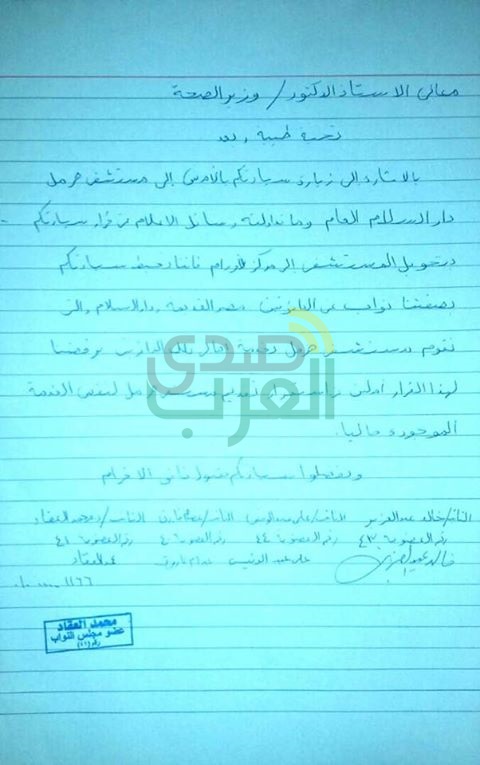 معالى الاستاذ الدكتور / وزير الصحة
تحية طيبة وبعد
بالاشارة إلى زيارة سيادتكم بالأمس إلى مستشفى هرمل
دار السلام العام وما تداولته وسائل الاعلام من قرار سيادتكم
بتحويل المستشفى إلى مركز للأورام فاننا نحيط سيادتكم
بصفتنا نواب عن الدائرتين مصر القديمة ودار السلام والتى
تقوم مستشفى هرمل بخدمة أهالى تلك الدائرتين برفضنا
لهذا القرار
لنفس الخدمة
الموجودة حاليا.
وتفضلوا سيادتكم بقبول فائق الاحترام
النائب/خالد عبدالعزيز النائب/ النائب/ النائب/محمد العقاد
رقم العضوية ٤٣ رقم العضوية ٤٤ رقم العضوية ٤ رقم العضوية ٤١
خالد عبدالعزيز محمد العقاد
صدى
العرب
محمد العقاد
عضو مجلس النواب
رقم (٤١)